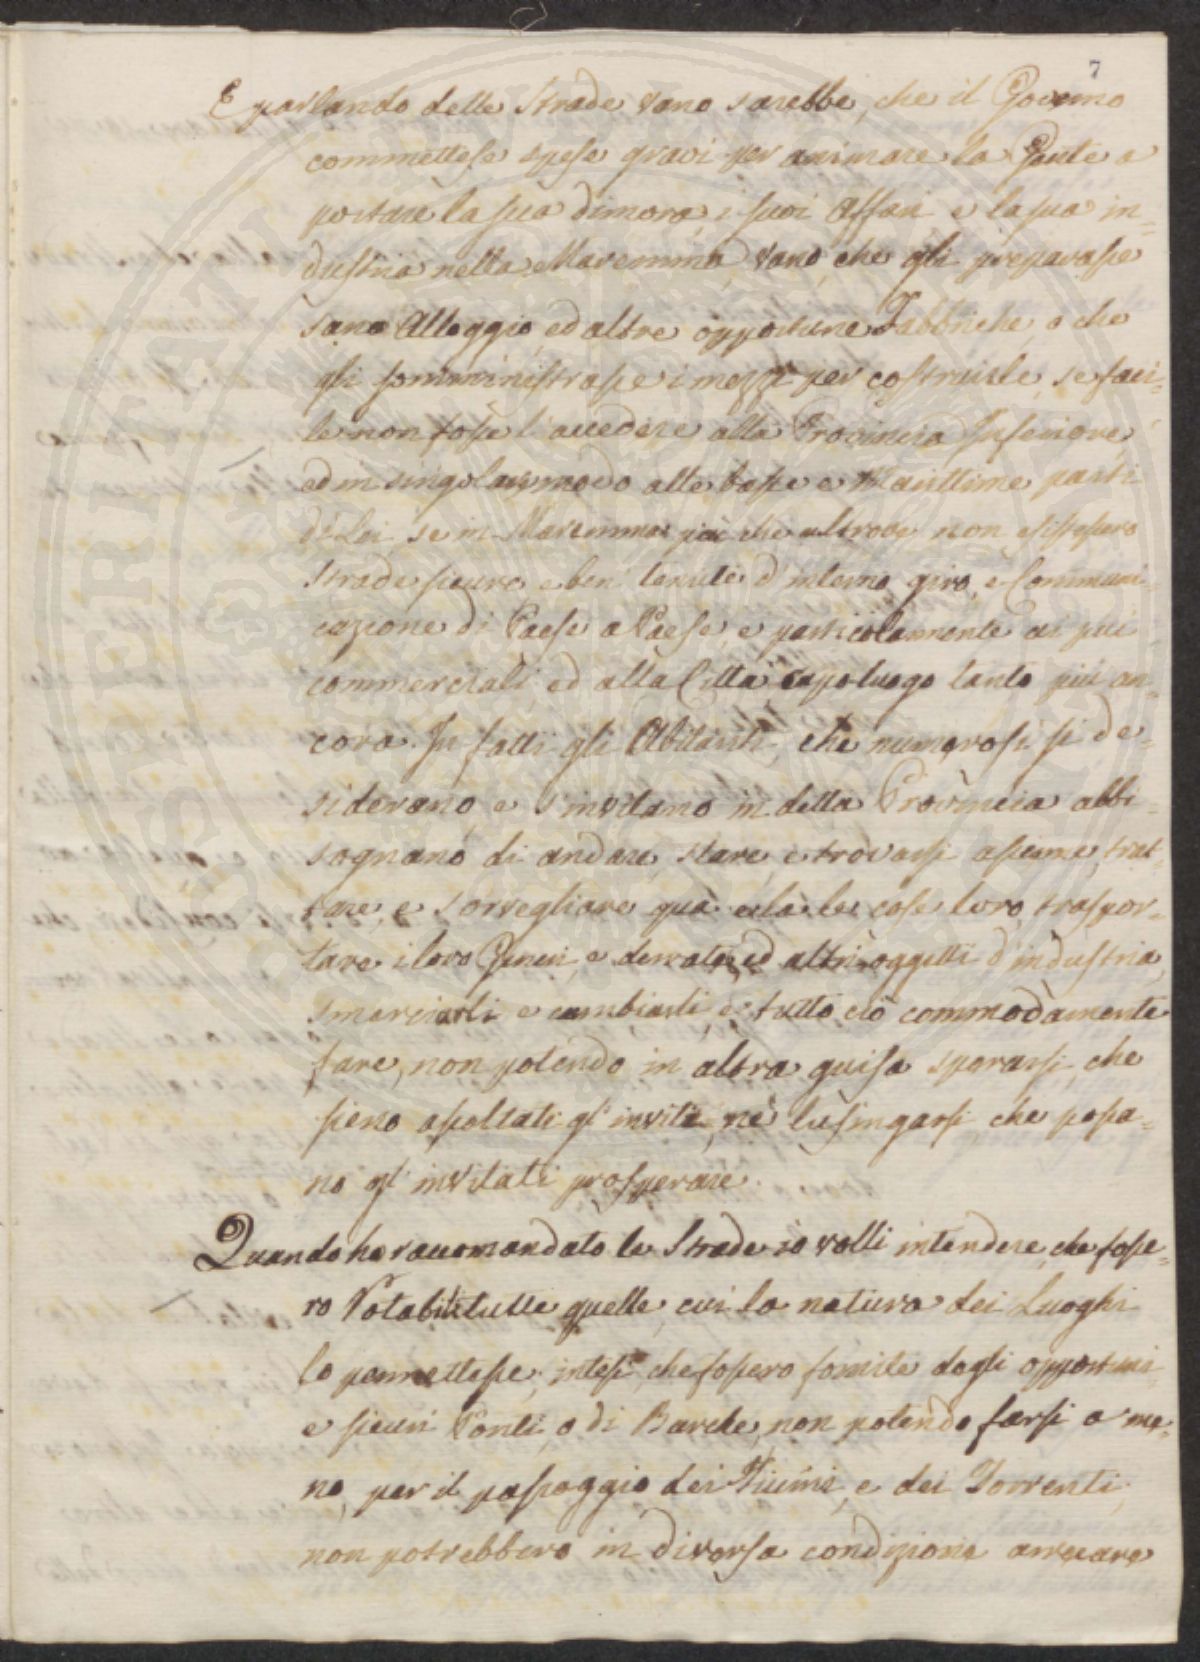 7
E parlando delle Strade vano sarebbe, che il Governo
commettesse spese gravi per animare la Gente a
portare la sua dimora, i suoi Affari e la sua in=
dustria nella Maremma, vano, che gli preparasse
sano Alloggio, ed altre opportune Fabbriche, o che
gli somministrasse i mezzi per costruirle, se faci=
le non fosse l'accedere alla Provincia Inferiore,
ed in singolar modo alle basse e Marittime parti
di Lei, se in Maremma più che altrove non esistessero
Strade sicure, e ben tenute d'interno giro, e Communi=
cazione di Paese a Paese, e particolarmente ai più
commerciali ed alla Città capoluogo tanto più an=
cora. In fatti gli Abitanti, che numerosi si de=
siderano, e s'invitano in detta Provincia abbi=
sognano di andare, stare, e trovarsi assieme, trat=
tare, e sorvegliare quà e là le cose loro, traspor=
tare i loro Generi, e derrate, ed altri oggetti d'industria,
smerciarli e cambiarli, e tutto ciò commodamente
fare, non potendo in altra guisa sperarsi, che
sieno ascoltati gl'inviti, nè lusingarsi, che possa=
no gl'invitati prosperare.
Quando ho raccomandato le Strade io volli intendere, che fosse=
ro Rotabili tutte quelle, cui la natura dei Luoghi
lo permettesse; intesi, che fossero fornite degli opportuni
e sicuri Ponti, o di Barche, non potendo farsi a me=
no, per il passaggio dei Fiumi, e dei Torrenti;
non potrebbero in diversa condizione arrecare